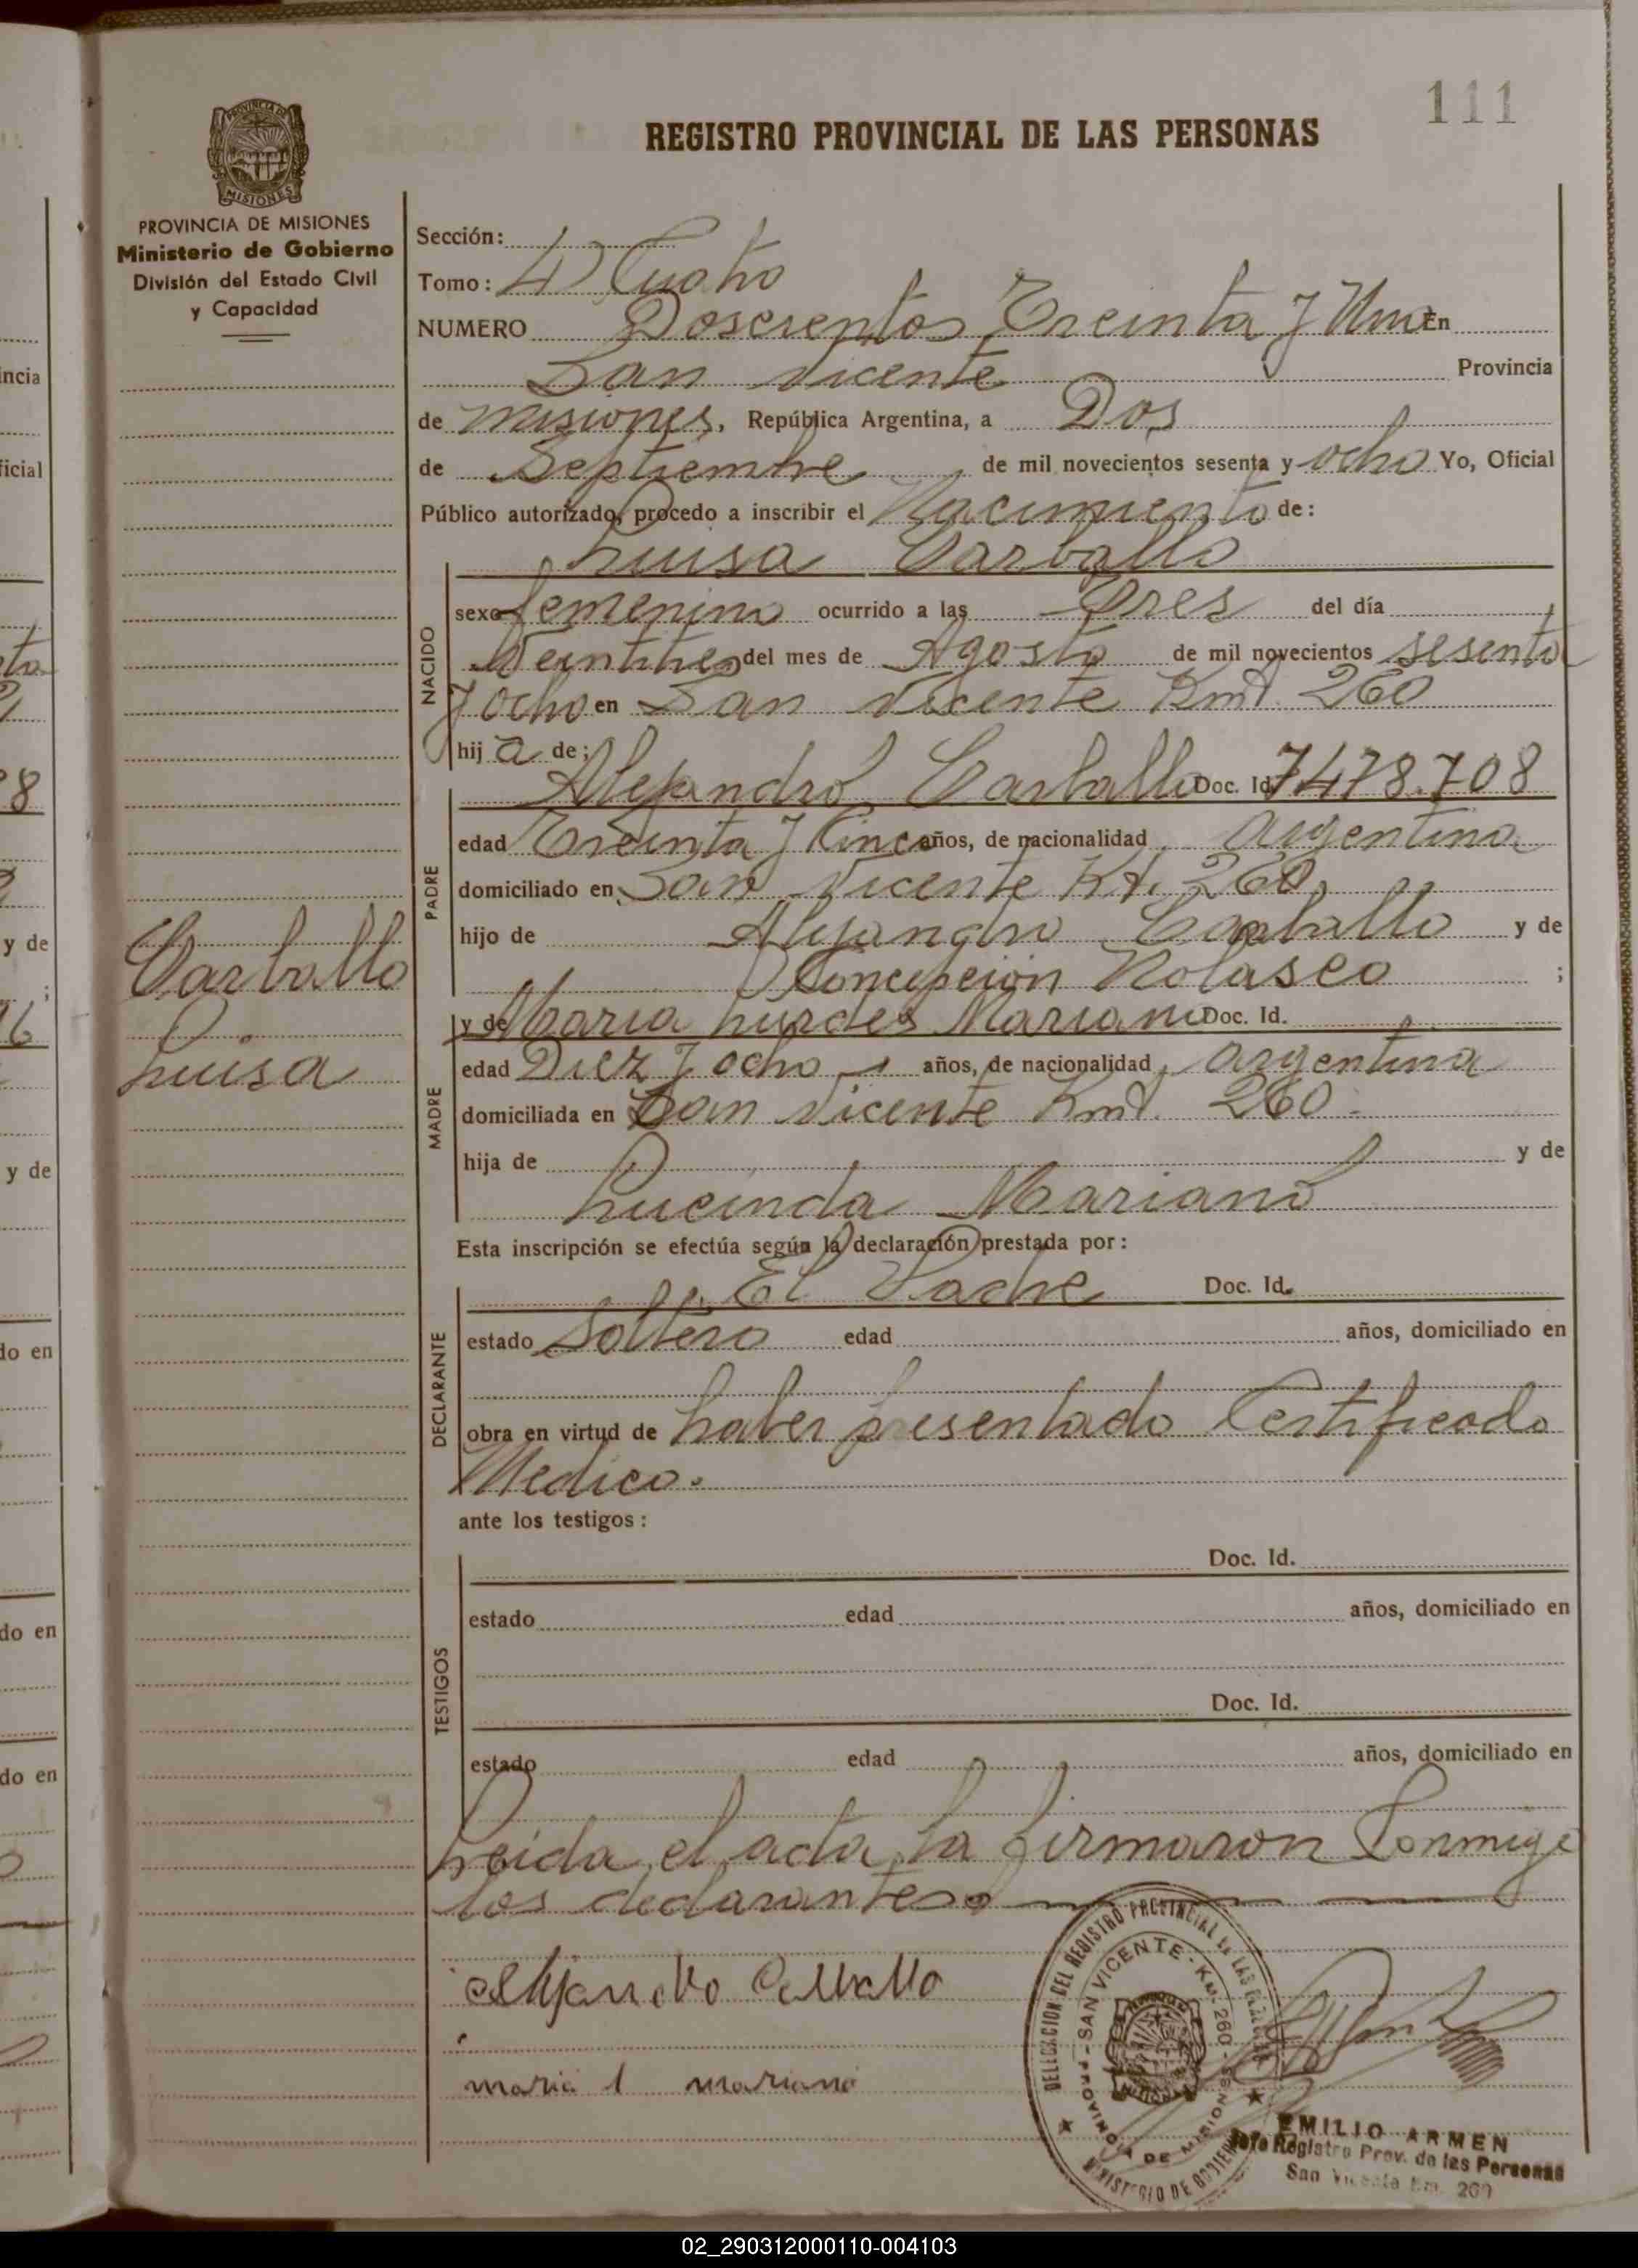 111
REGISTRO PROVINCIAL DE LAS PERSONAS
PROVINCIA DE MISIONES
Ministerio de Gobierno
División del Estado Civil
y Capacidad
Sección:
Tomo: 4) Cuatro
NUMERO Doscientos Treinta y Uno En
San Vicente Provincia
de Misiones, República Argentina, a Dos
de Septiembre de mil novecientos sesenta y ocho Yo, Oficial
Público autorizado, procedo a inscribir el Nacimiento de:
Luisa Carballo
NACIDO
sexo femenino ocurrido a las Tres del día
Veintitres del mes de Agosto de mil novecientos sesenta
y ocho en San Vicente Kmt. 260
hij a de;
PADRE
Alejandro Carballo Doc. Id. 7478.708
edad Treinta y Cinco años, de nacionalidad argentina
domiciliado en San Vicente Kt. 260
hijo de Alejandro Carballo y de
Concepcion Nolasco ;
Carballo
Luisa
MADRE
y de Maria Lurdes Mariano Doc. Id.
edad Diez y ocho años, de nacionalidad argentina
domiciliada en San Vicente Kmt. 260
hija de y de
Lucinda Mariano
Esta inscripción se efectúa según la declaración prestada por:
DECLARANTE
El Padre Doc. Id.
estado Soltero edad años, domiciliado en
obra en virtud de haber presentado Certificado
Medico.
ante los testigos:
TESTIGOS
Doc. Id.
estado edad años, domiciliado en
Doc. Id.
estado edad años, domiciliado en
Leida el acta la firmaron Conmigo
los declarantes
Alejandro Carballo
maria l mariano
DELEGACION DEL REGISTRO PROVINCIAL DE LAS PERSONAS
SAN VICENTE - Km. 260 - PROVINCIA DE MISIONES
MINISTERIO DE GOBIERNO
EMILIO ARMEN
Jefe Registro Prov. de las Personas
San Vicente Km. 260
ncia
ficial
8
y de
;
6
y de
do en
do en
do en
02_290312000110-004103